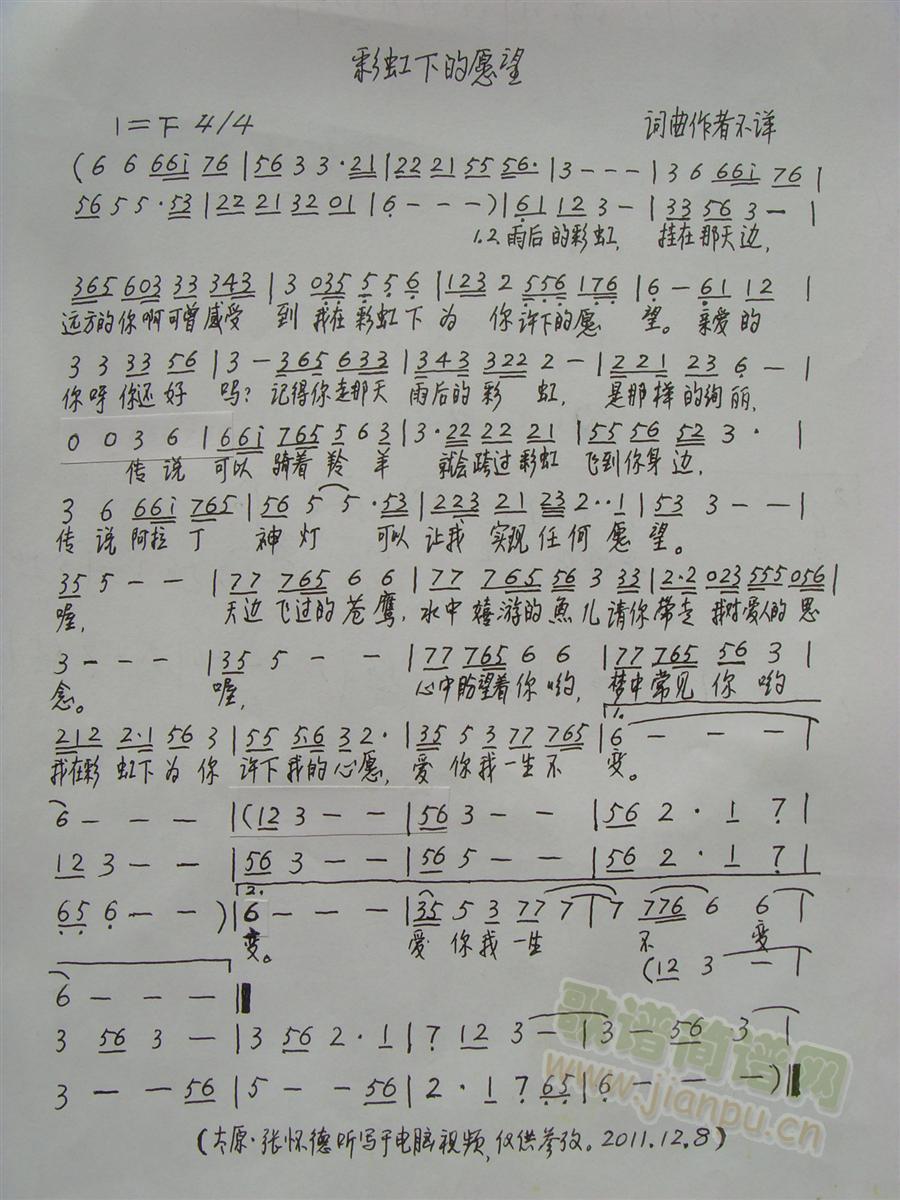 彩虹下的愿望
1=F 4/4 词曲作者不详
(6 6 66i 76 | 56 3 3·21 | 22 21 55 56· | 3 - - - | 3 6 66i 76 |
56 5 5·53 | 22 21 32 01 | 6 - - - ) | 61 12 3 - | 33 56 3 - |
1.2.雨后的彩虹, 挂在那天边,
365 603 33 343 | 3 035 5 5 6 | 123 2 556 176 | 6 - 61 12 |
远方的你啊可曾感受 到 我在彩虹下为 你许下的愿 望。亲爱的
3 3 33 56 | 3 - 365 633 | 343 322 2 - | 221 23 6 - |
你呀你还好 吗?记得你走那天 雨后的彩 虹, 是那样的绚丽,
0 0 3 6 | 66i 765 5 6 3 | 3·22 22 21 | 55 56 52 3 · |
传说 可以 骑着羚羊 就会跨过彩虹 飞到你身边,
3 6 66i 765 | 56 5 5·53 | 223 21 23 2··1 | 53 3 - - |
传说阿拉丁 神灯 可以 让我 实现任何愿望。
35 5 - - | 77 765 6 6 | 77 765 56 3 33 | 2·2 023 555 056 |
喔, 天边飞过的苍鹰,水中嬉游的魚儿请你带走 我对爱人的思
3 - - - | 35 5 - - | 77 765 6 6 | 77 765 56 3 |
念。 喔, 心中盼望着你哟, 梦中常见你哟
212 2·1 56 3 | 55 56 32· | 35 5 3 77 765 | 1. 6 - - - |
我在彩虹下为你 许下我的心愿, 爱你我一生不 变。
6 - - - | (12 3 - - | 56 3 - - | 56 2 · 1 7 |
12 3 - - | 56 3 - - | 56 5 - - | 56 2 · 1 7 |
65 6 - - ) | 2. 6 - - - | 35 5 3 77 7 | 7 776 6 6 |
变。 爱你我一生 不 变
(12 3 - |
6 - - - ‖
3 56 3 - | 3 56 2·1 | 7 12 3 - | 3 - 56 3 |
3 - - 56 | 5 - - 56 | 2·1 7 65 | 6 - - - ) ‖
歌谱简谱网
www.jianpu.cn
(太原·张怀德听写于电脑视频,仅供参考。2011.12.8)